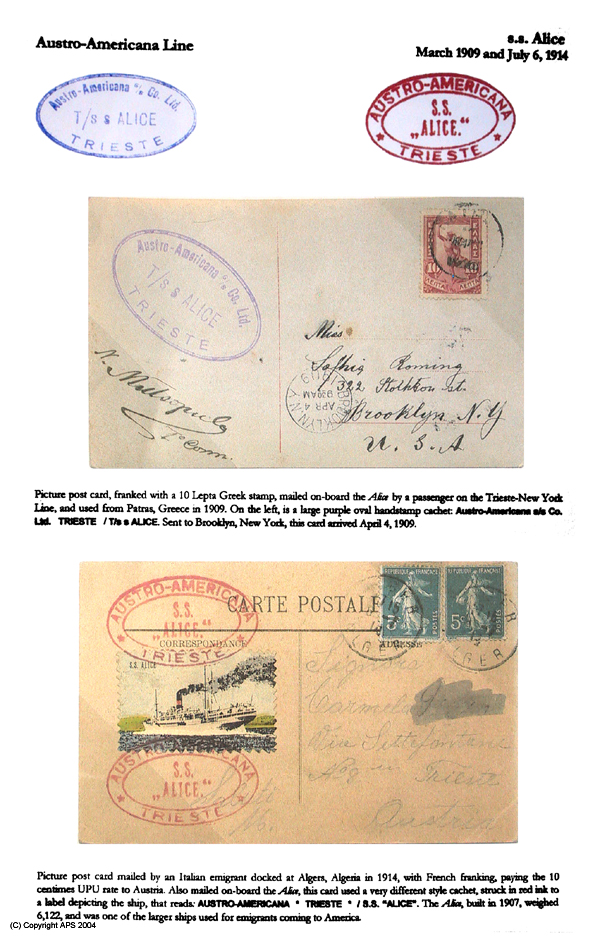 Austro-Americana Line
s.s. Alice
March 1909 and July 6, 1914
Austro-Americana a/s Co. Ltd.
T/s s ALICE
TRIESTE
AUSTRO-AMERICANA
S.S.
„ALICE.“
* TRIESTE *
Austro-Americana a/s Co. Ltd.
T/s s ALICE
TRIESTE
10
ΛΕΠΤΑ ΛΕΠΤΑ
Miss
Roming
322 st.
Brooklyn. N.Y
U. S. A
BROOKLYN N.Y.
APR 4
930AM
Picture post card, franked with a 10 Lepta Greek stamp, mailed on-board the Alice by a passenger on the Trieste-New York
Line, and used from Patras, Greece in 1909. On the left, is a large purple oval handstamp cachet: Austro-Americana a/s Co.
Ltd. TRIESTE / T/s s ALICE. Sent to Brooklyn, New York, this card arrived April 4, 1909.
AUSTRO-AMERICANA
S.S.
„ALICE.“
* TRIESTE *
CARTE POSTALE
CORRESPONDANCE
ADRESSE
REPUBLIQUE FRANÇAISE
5c POSTES
REPUBLIQUE FRANÇAISE
5c POSTES
ALGER
S.S. ALICE
AUSTRO-AMERICANA
S.S.
„ALICE.“
* TRIESTE *
Signora
Carmela
Via Settefontane
No 9 in Trieste
Austria
Picture post card mailed by an Italian emigrant docked at Algers, Algeria in 1914, with French franking, paying the 10
centimes UPU rate to Austria. Also mailed on-board the Alice, this card used a very different style cachet, struck in red ink to
a label depicting the ship, that reads: AUSTRO-AMERICANA * TRIESTE * / S.S. "ALICE". The Alice, built in 1907, weighed
6,122, and was one of the larger ships used for emigrants coming to America.
(C) Copyright APS 2004